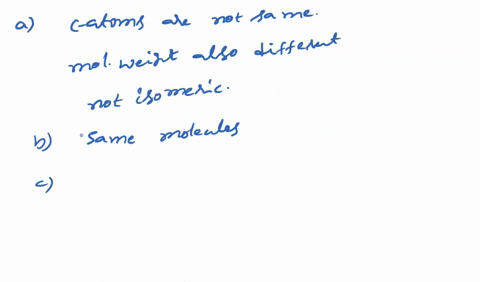 a) C-atoms are not same.
mol. weight also different
not isomeric.
b) same molecules
c)